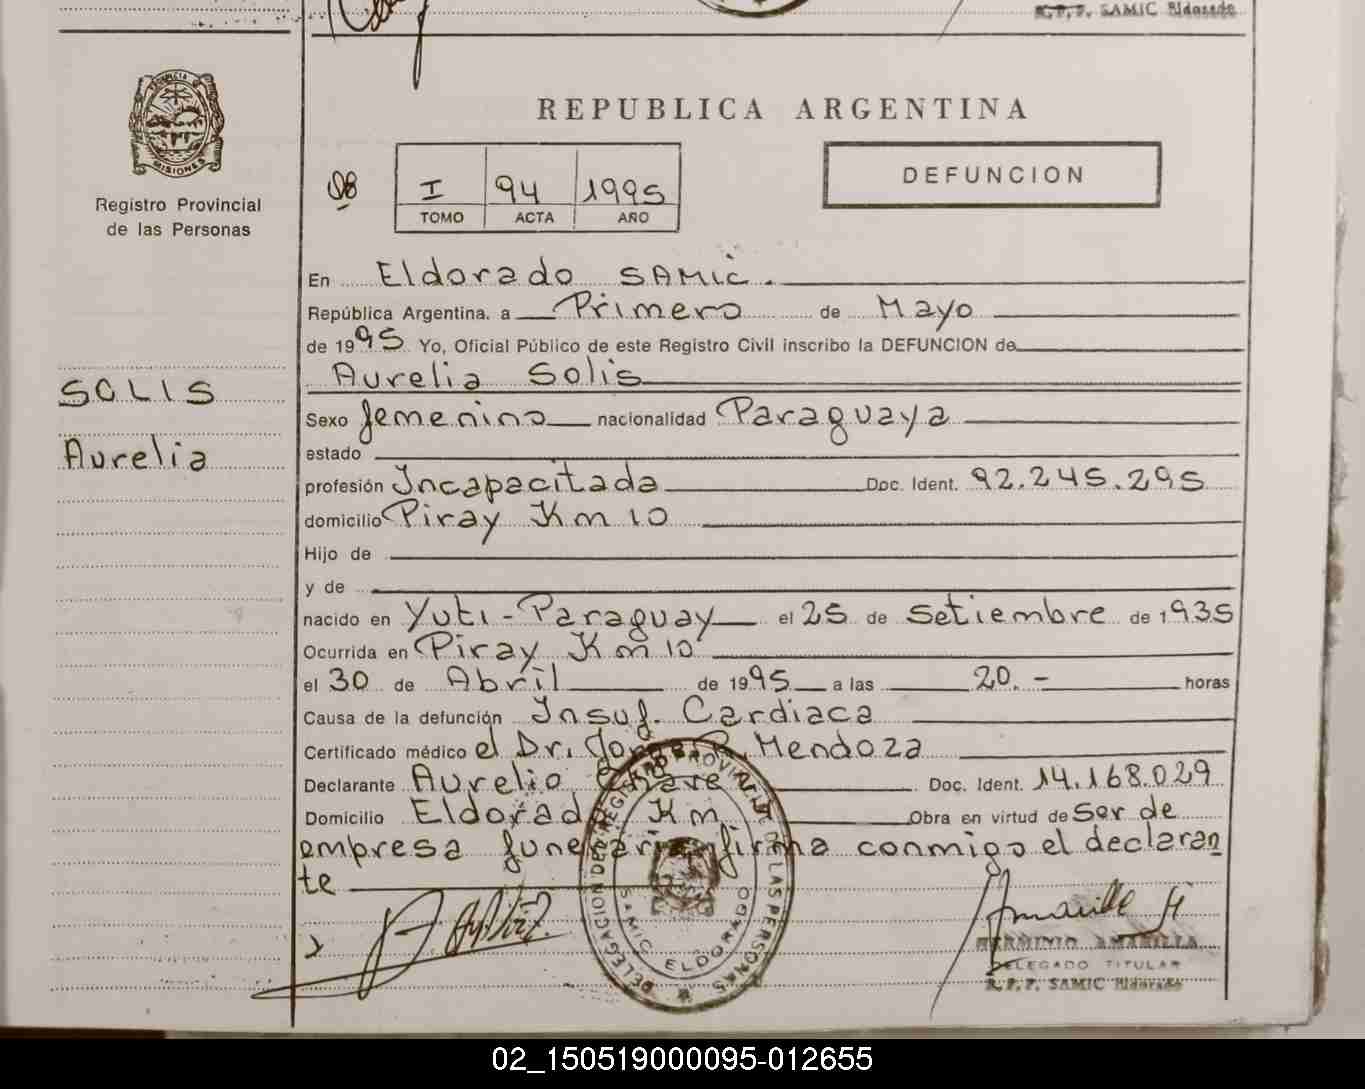 R.P.P. SAMIC Eldorado
PROVINCIA DE
MISIONES
Registro Provincial
de las Personas
REPUBLICA ARGENTINA
DEFUNCION
I 94 1995
TOMO ACTA AÑO
SOLIS
Aurelia
En Eldorado SAMIC.
República Argentina. a Primero de Mayo
de 1995 Yo, Oficial Público de este Registro Civil inscribo la DEFUNCION de
Aurelia Solis
Sexo femenino nacionalidad Paraguaya
estado
profesión Incapacitada Doc. Ident. 92.245.295
domicilio Piray Km 10
Hijo de
y de
nacido en Yuti-Paraguay el 25 de Setiembre de 1935
Ocurrida en Piray Km 10
el 30 de Abril de 1995 a las 20.- horas
Causa de la defunción Insuf. Cardiaca
Certificado médico el Dr. Jorge R. Mendoza
Declarante Aurelio Doc. Ident. 14.168.029
Domicilio Eldorado Km Obra en virtud de Ser de
empresa funeraria firma conmigo el declaran
te
DELEGACION DEL REGISTRO PROVINCIAL DE LAS PERSONAS
SAMIC ELDORADO
HERMINIO AMARILLA
DELEGADO TITULAR
R.P.P. SAMIC Eldorado
02_150519000095-012655